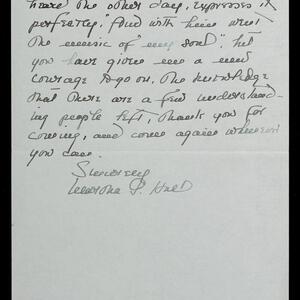 heard the other day, expresses it
perfectly: "And with him went
the music of my soul", but
you have given me a new
courage to go on. The knowledge
that there are a few understand-
ing people left. Thank you for
coming, and come again whenever
you can.
Sincerely
P.